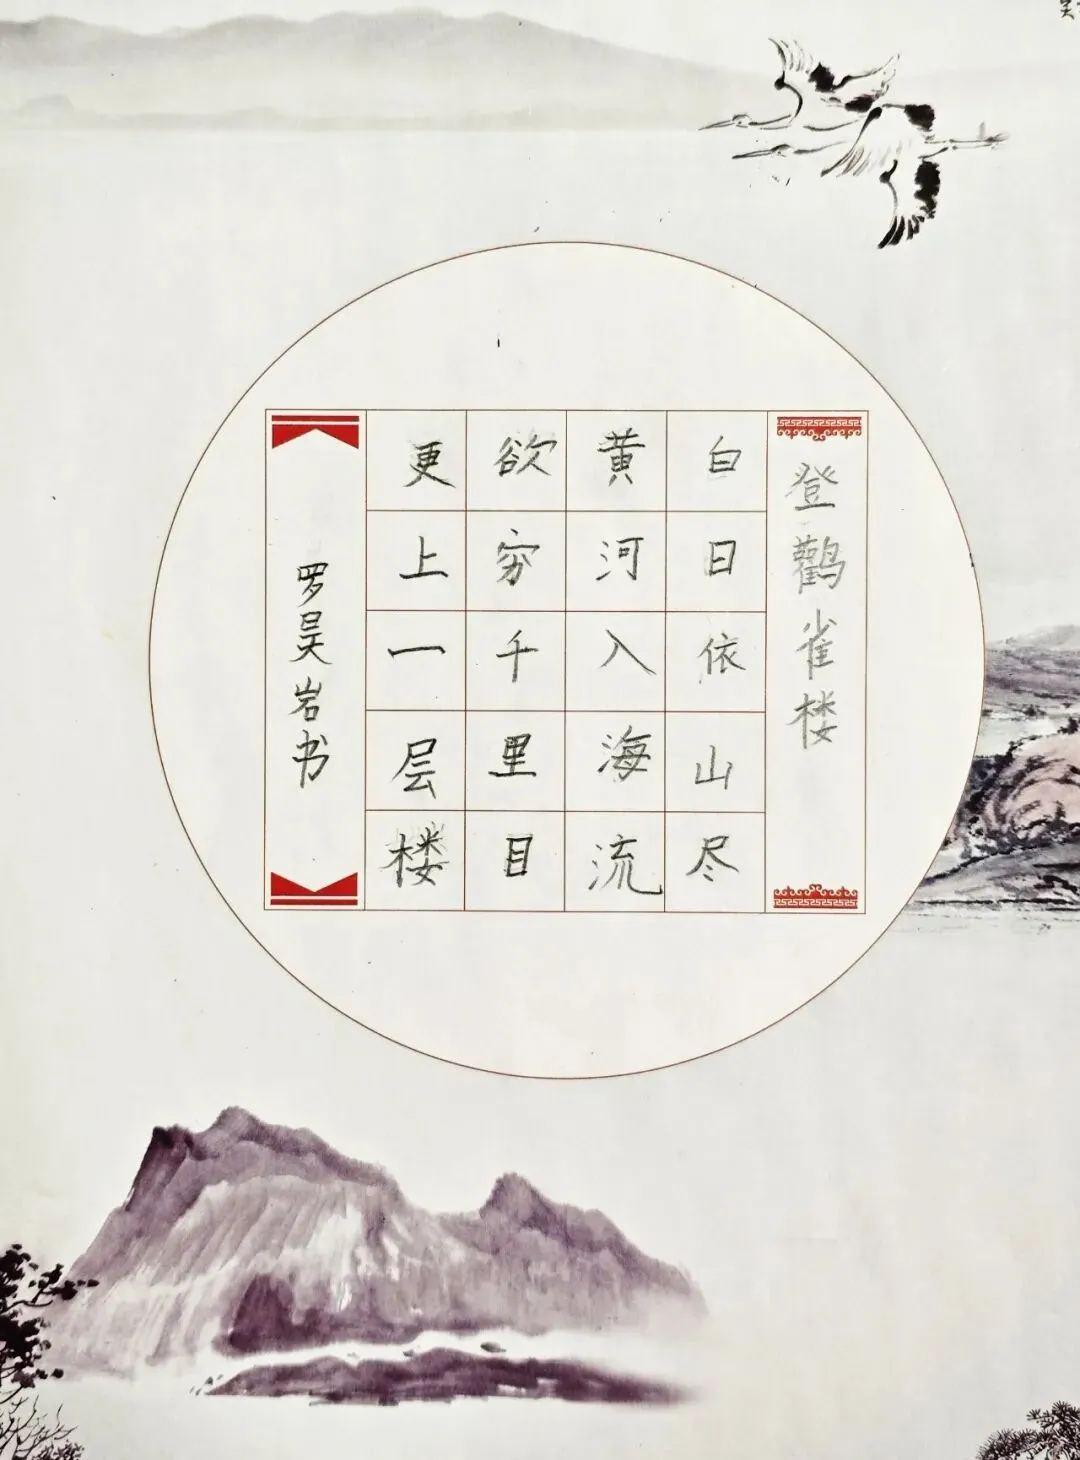 登鹳雀楼
白日依山尽
黄河入海流
欲穷千里目
更上一层楼
罗吴岩书